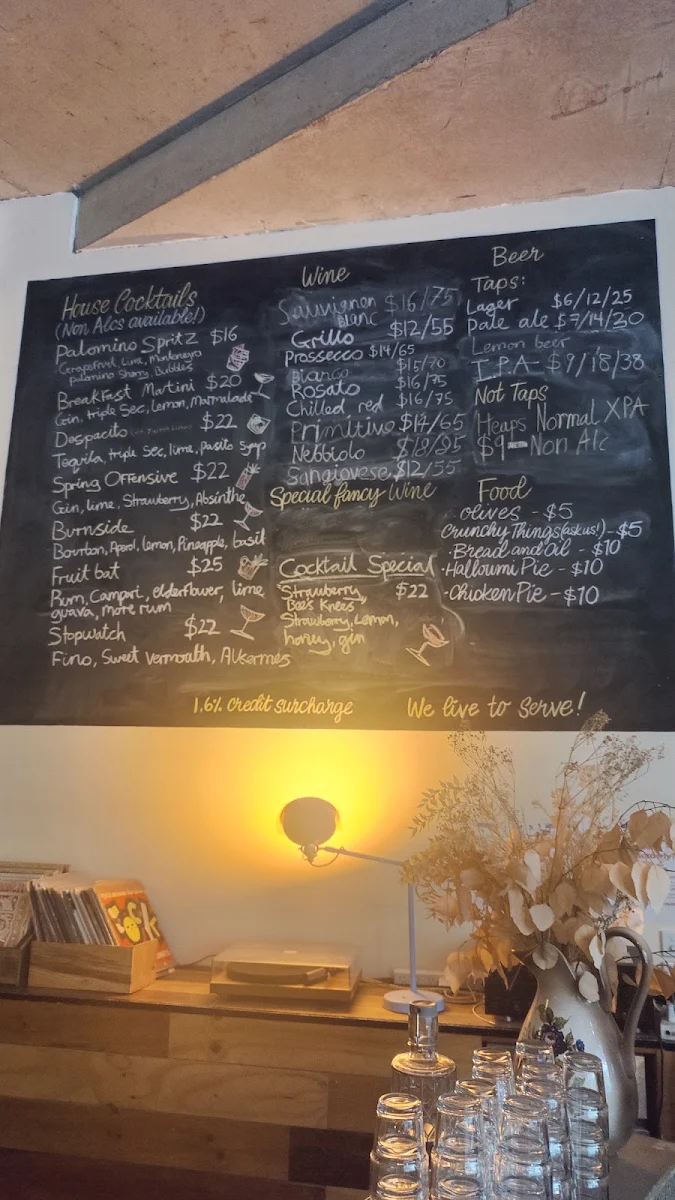 House Cocktails
(Non Alcs available!)
Palomino Spritz $16
Grapefruit, Lime, Montenegro
palomino Sherry, Bubbles
Breakfast Martini $20
Gin, triple Sec, lemon, Marmalade
Despacito $22
Tequila, triple Sec, lime, Pasito Syrp
Spring Offensive $22
Gin, lime, Strawberry, Absinthe
Burnside $22
Bourbon, Aperol, lemon, Pineapple, basil
Fruit bat $25
Rum, Campari, elderflower, lime
guava, more rum
Stopwatch $22
Fino, Sweet vermouth, Alkermes
Wine
Sauvignon Blanc $16/75
Grillo $12/55
Prossecco $14/65
Bianco $15/70
Rosato $16/75
Chilled red $16/75
Primitivo $14/65
Nebbiolo $18/85
Sangiovese $12/55
Special fancy Wine
Cocktail Special
Strawberry $22
Bee's Knees
Strawberry, Lemon,
honey, gin
Beer
Taps:
Lager $6/12/25
Pale ale $7/14/30
Lemon beer
I.P.A $9/18/38
Not Taps
Heaps Normal XPA
$9 - Non Alc
Food
olives - $5
Crunchy Things (ask us!) - $5
· Bread and Oil - $10
· Halloumi Pie - $10
· Chicken Pie - $10
1.6% credit surcharge
We live to serve!